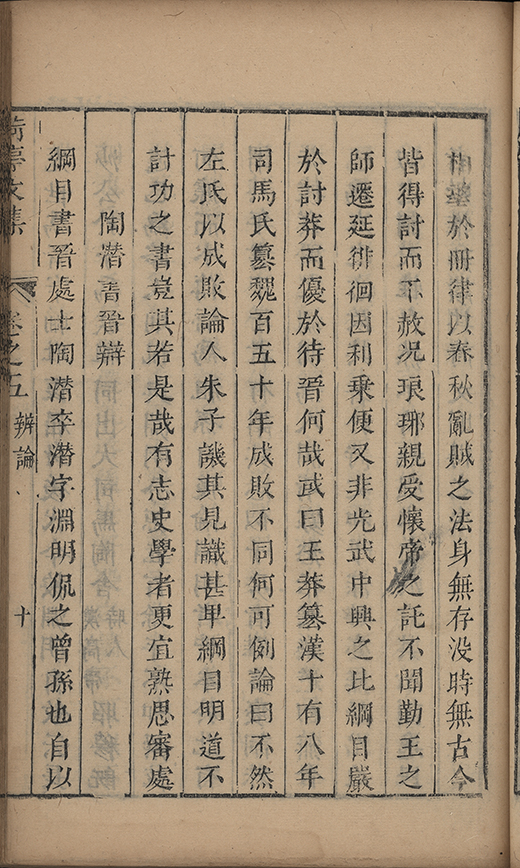 相望於冊律以春秋亂賊之法身無存没時無古今
皆得討而不赦况琅琊親受懷帝之託不聞勤王之
師遷延徘徊因利乗便又非光武中興之比綱目嚴
於討莽而優於待晋何哉或曰王莽篡漢十有八年
司馬氏篡魏百五十年成敗不同何可例論曰不然
左氏以成敗論人朱子譏其見識甚卑綱目明道不
計功之書豈其若是哉有志史學者更宜熟思審處
陶潛書晉辯
綱目書晋處士陶潛卒潛字淵明侃之曾孫也自以
亭文集 卷之五 辨論 十